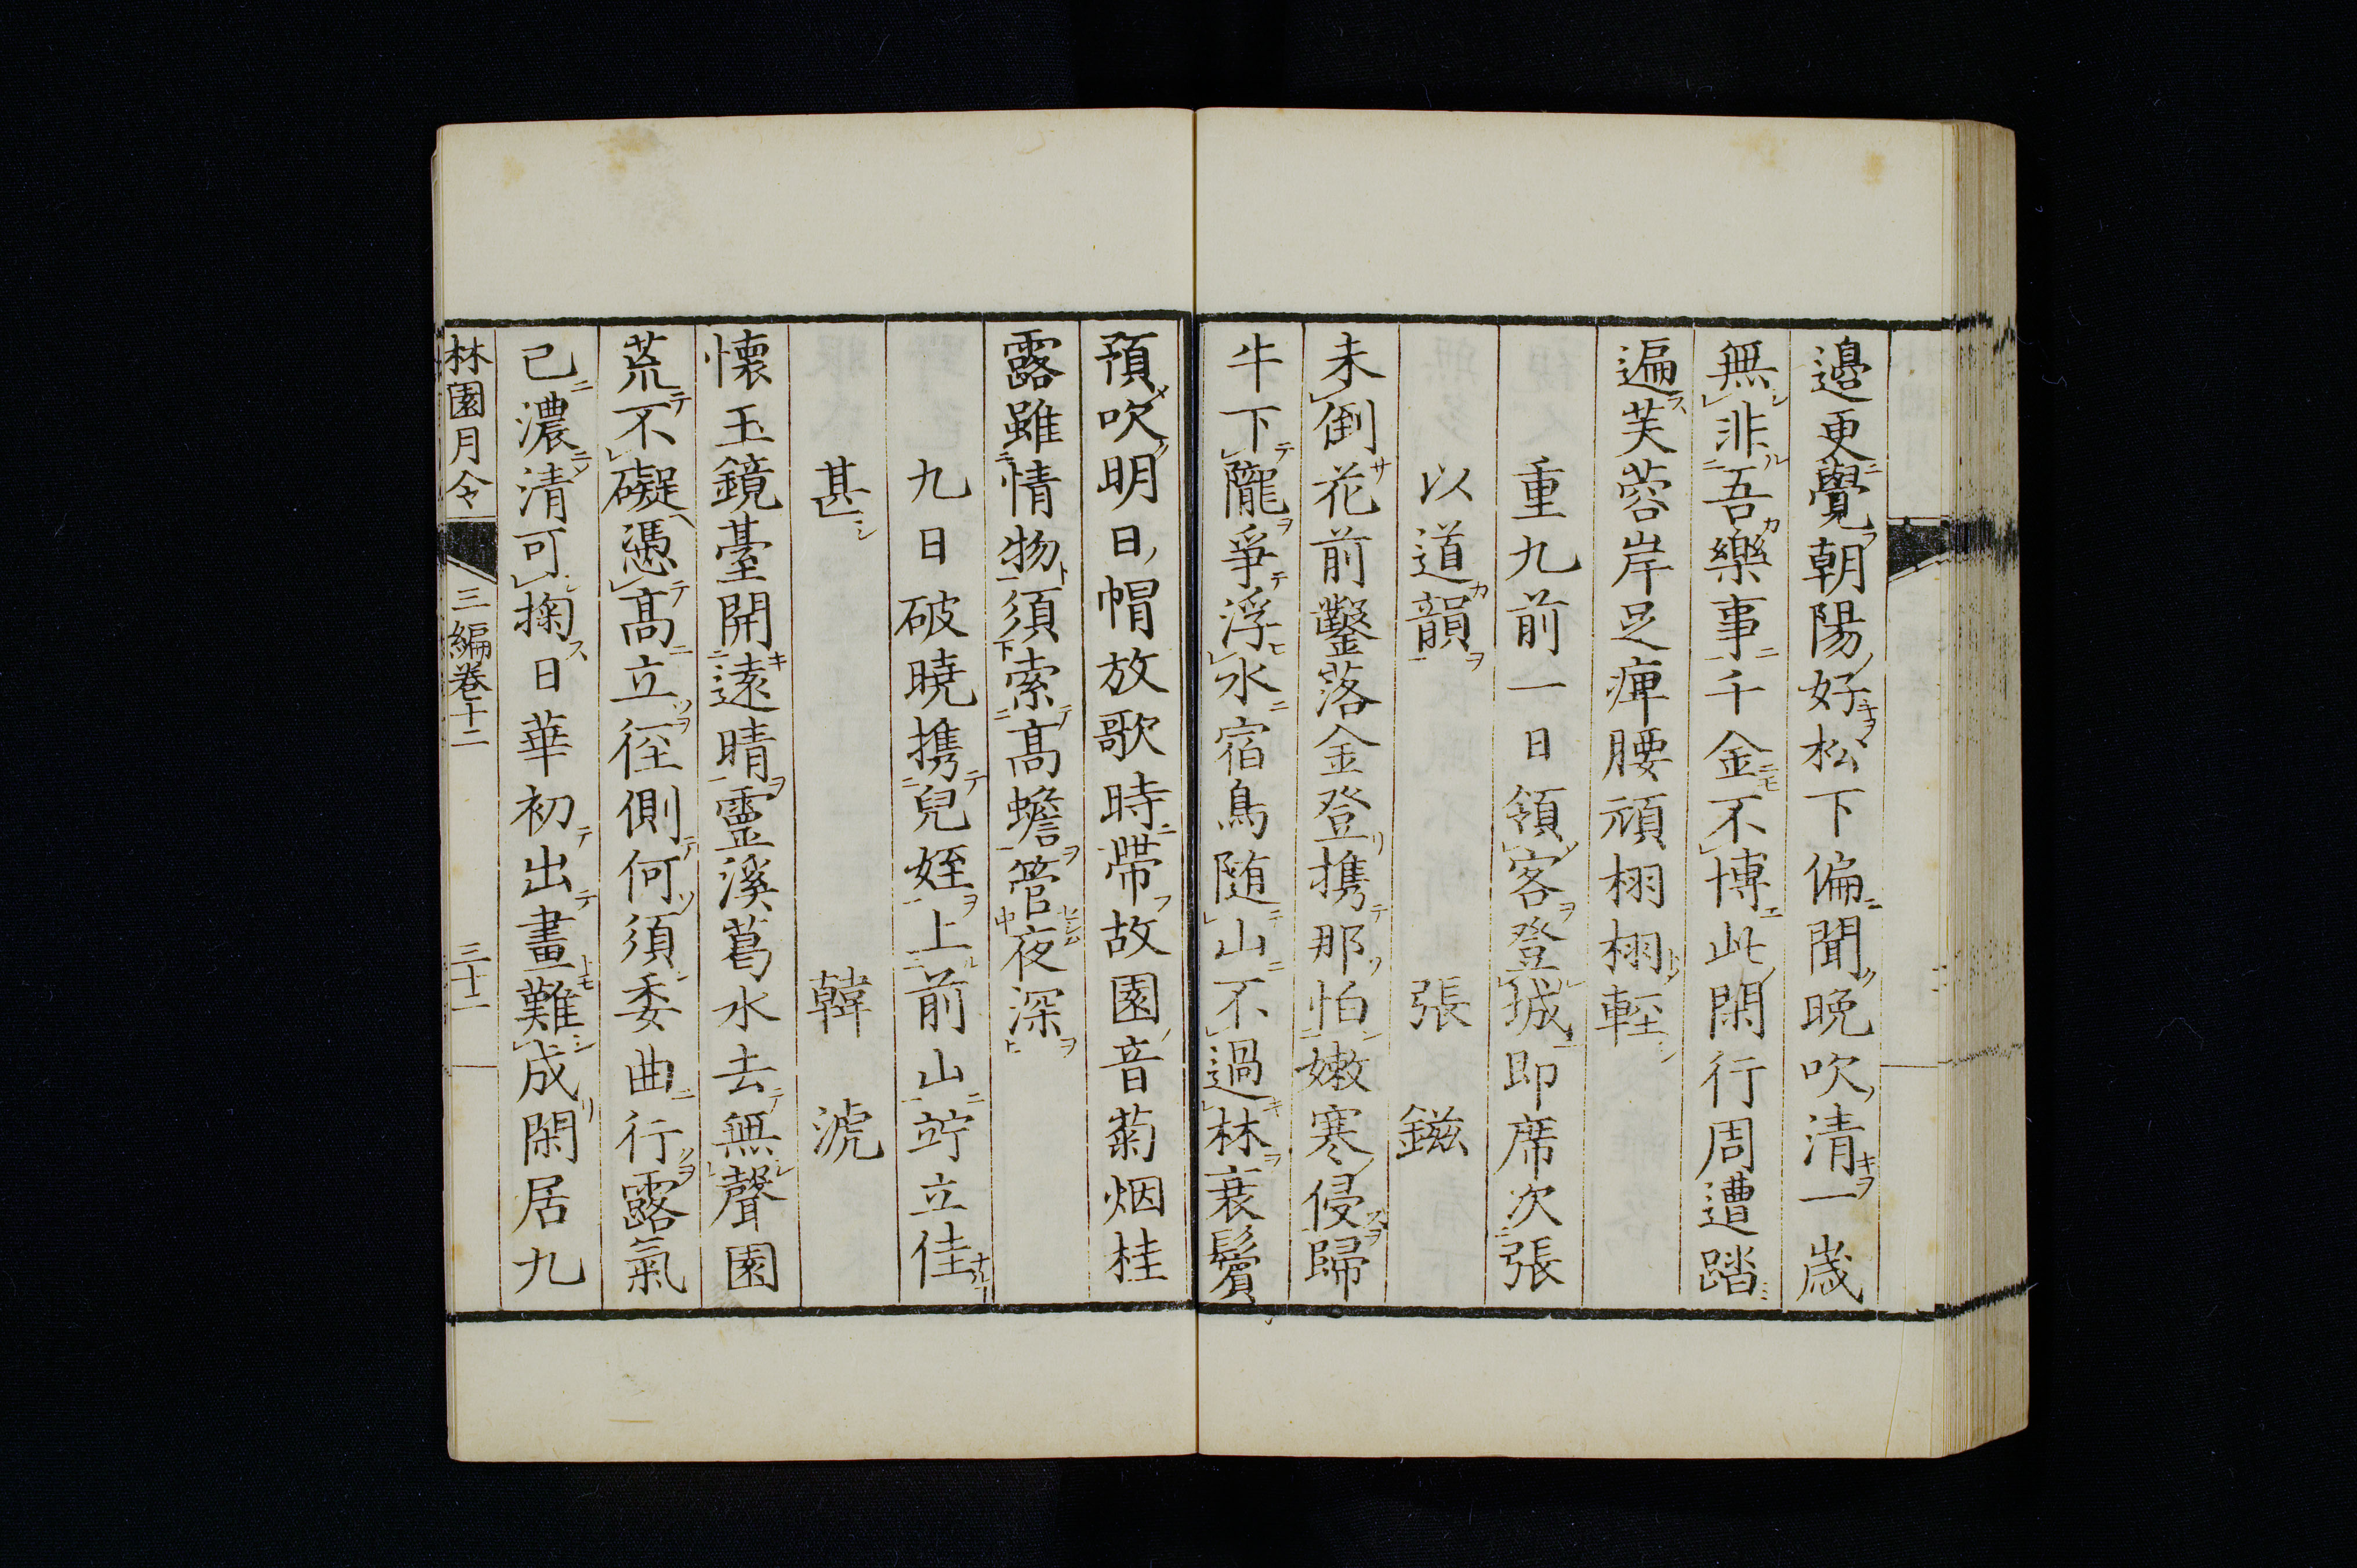 邉更覺朝陽好松下偏聞晚吹清一歲
無非吾樂事千金不博此閑行周遭踏
遍芙蓉岸足痺腰頑栩栩輕
重九前一日領客登城即席次張
以道韻　張　鎡
未倒花前鑿落金登攜那怕嫩寒侵歸
牛下隴爭浮水宿鳥随山不過林衰鬢
預吹明日帽放歌時帶故園音菊烟桂
露雖情物須索高蟾管夜深
九日破曉攜兒姪上前山竚立佳
甚　韓　淲
懷玉鏡臺開遠晴靈溪葛水去無聲園
荒不礙憑高立徑側何須委曲行露氣
已濃清可掬日華初出畫難成閑居九
林園月令　三編卷十二　三十二